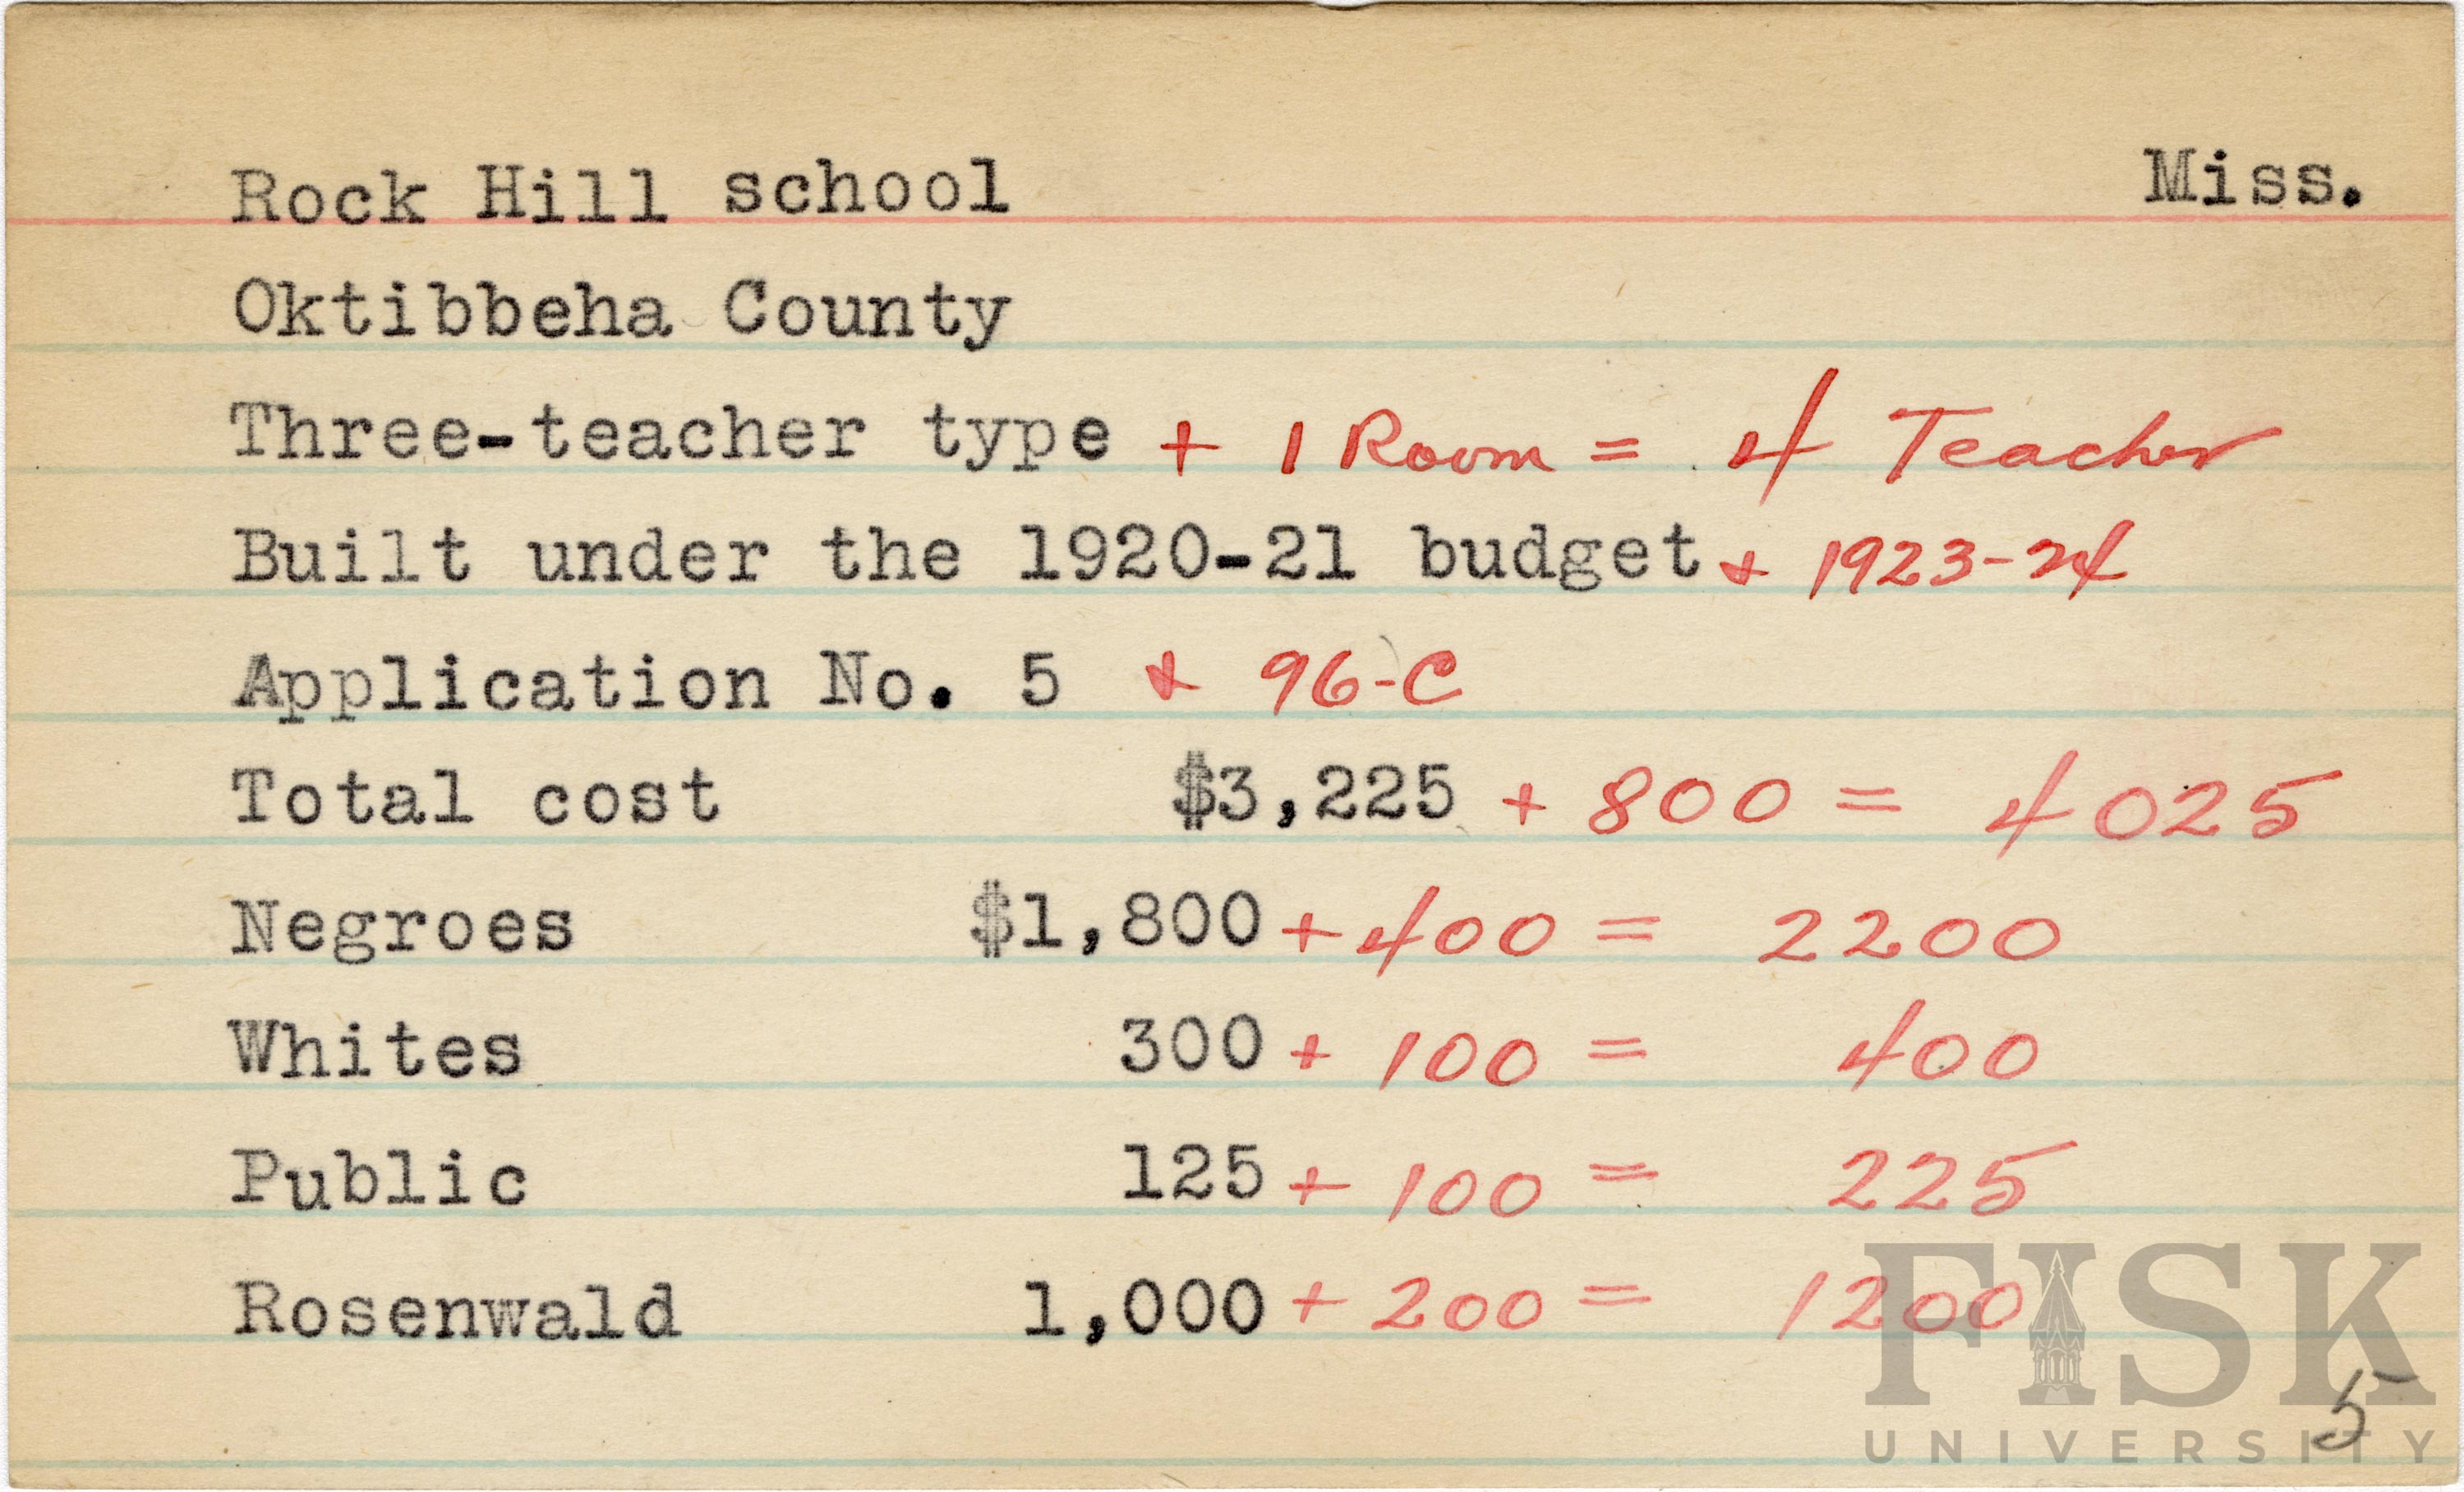 Rock Hill school Miss.
Oktibbeha County
Three-teacher type + 1 Room = 4 Teacher
Built under the 1920-21 budget + 1923-24
Application No. 5 + 96-C
Total cost $3,225 + 800 = 4025
Negroes $1,800 + 400 = 2200
Whites 300 + 100 = 400
Public 125 + 100 = 225
Rosenwald 1,000 + 200 = 1200
FISK
5
UNIVERSITY